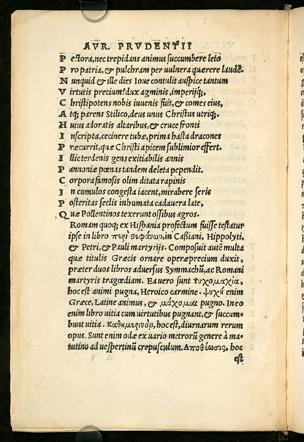 AVR. PRVDENTII
Pectora, nec trepidans animus succumbere leto
Pro patria, & pulchram per uulnera quærere laudē.
Nunquid & ille dies Ioue contulit auspice tantum
Virtutis precium? dux agminis, imperijq́;
Christipotens nobis iuuenis fuit, & comes eius,
Atq; parens Stilico, deus unus Christus utriq;.
Huius adoratis altaribus, & cruce fronti
Inscripta, cecinere tubæ, prima hasta dracones
Præcurrit, quæ Christi apicem sublimior effert.
Illic terdenis gens exitiabilis annis
Pannoniæ pœnas tandem deleta pependit.
Corpora famosis olim ditata rapinis
In cumulos congesta iacent, mirabere seris
Posteritas seclis inhumata cadauera late,
Quæ Pollentinos texerunt ossibus agros.
Romam quoq; ex Hispania profectum fuisse testatur
ipse in libro περὶ στεφάνων in Casiani, Hippolyti,
& Petri, & Pauli martyrijs. Composuit autē multa
quæ titulis Græcis ornare operæprecium duxit,
præter duos libros aduersus Symmachū, ac Romani
martyris tragœdiam. Ea uero sunt ψυχομαχία,
hoc est animi pugna, Heroico carmine. ψυχὴ enim
Græce, Latine animus, & μάχομαι pugno. In eo
enim libro uitia cum uirtutibus pugnant, & succum-
bunt uitia. καθημερινῶν, hoc est, diurnarum rerum
opus. Sunt enim odæ ex uario metrorū genere à ma-
tutino ad uespertinū crepusculum. Ἀποθέωσις, hoc
est